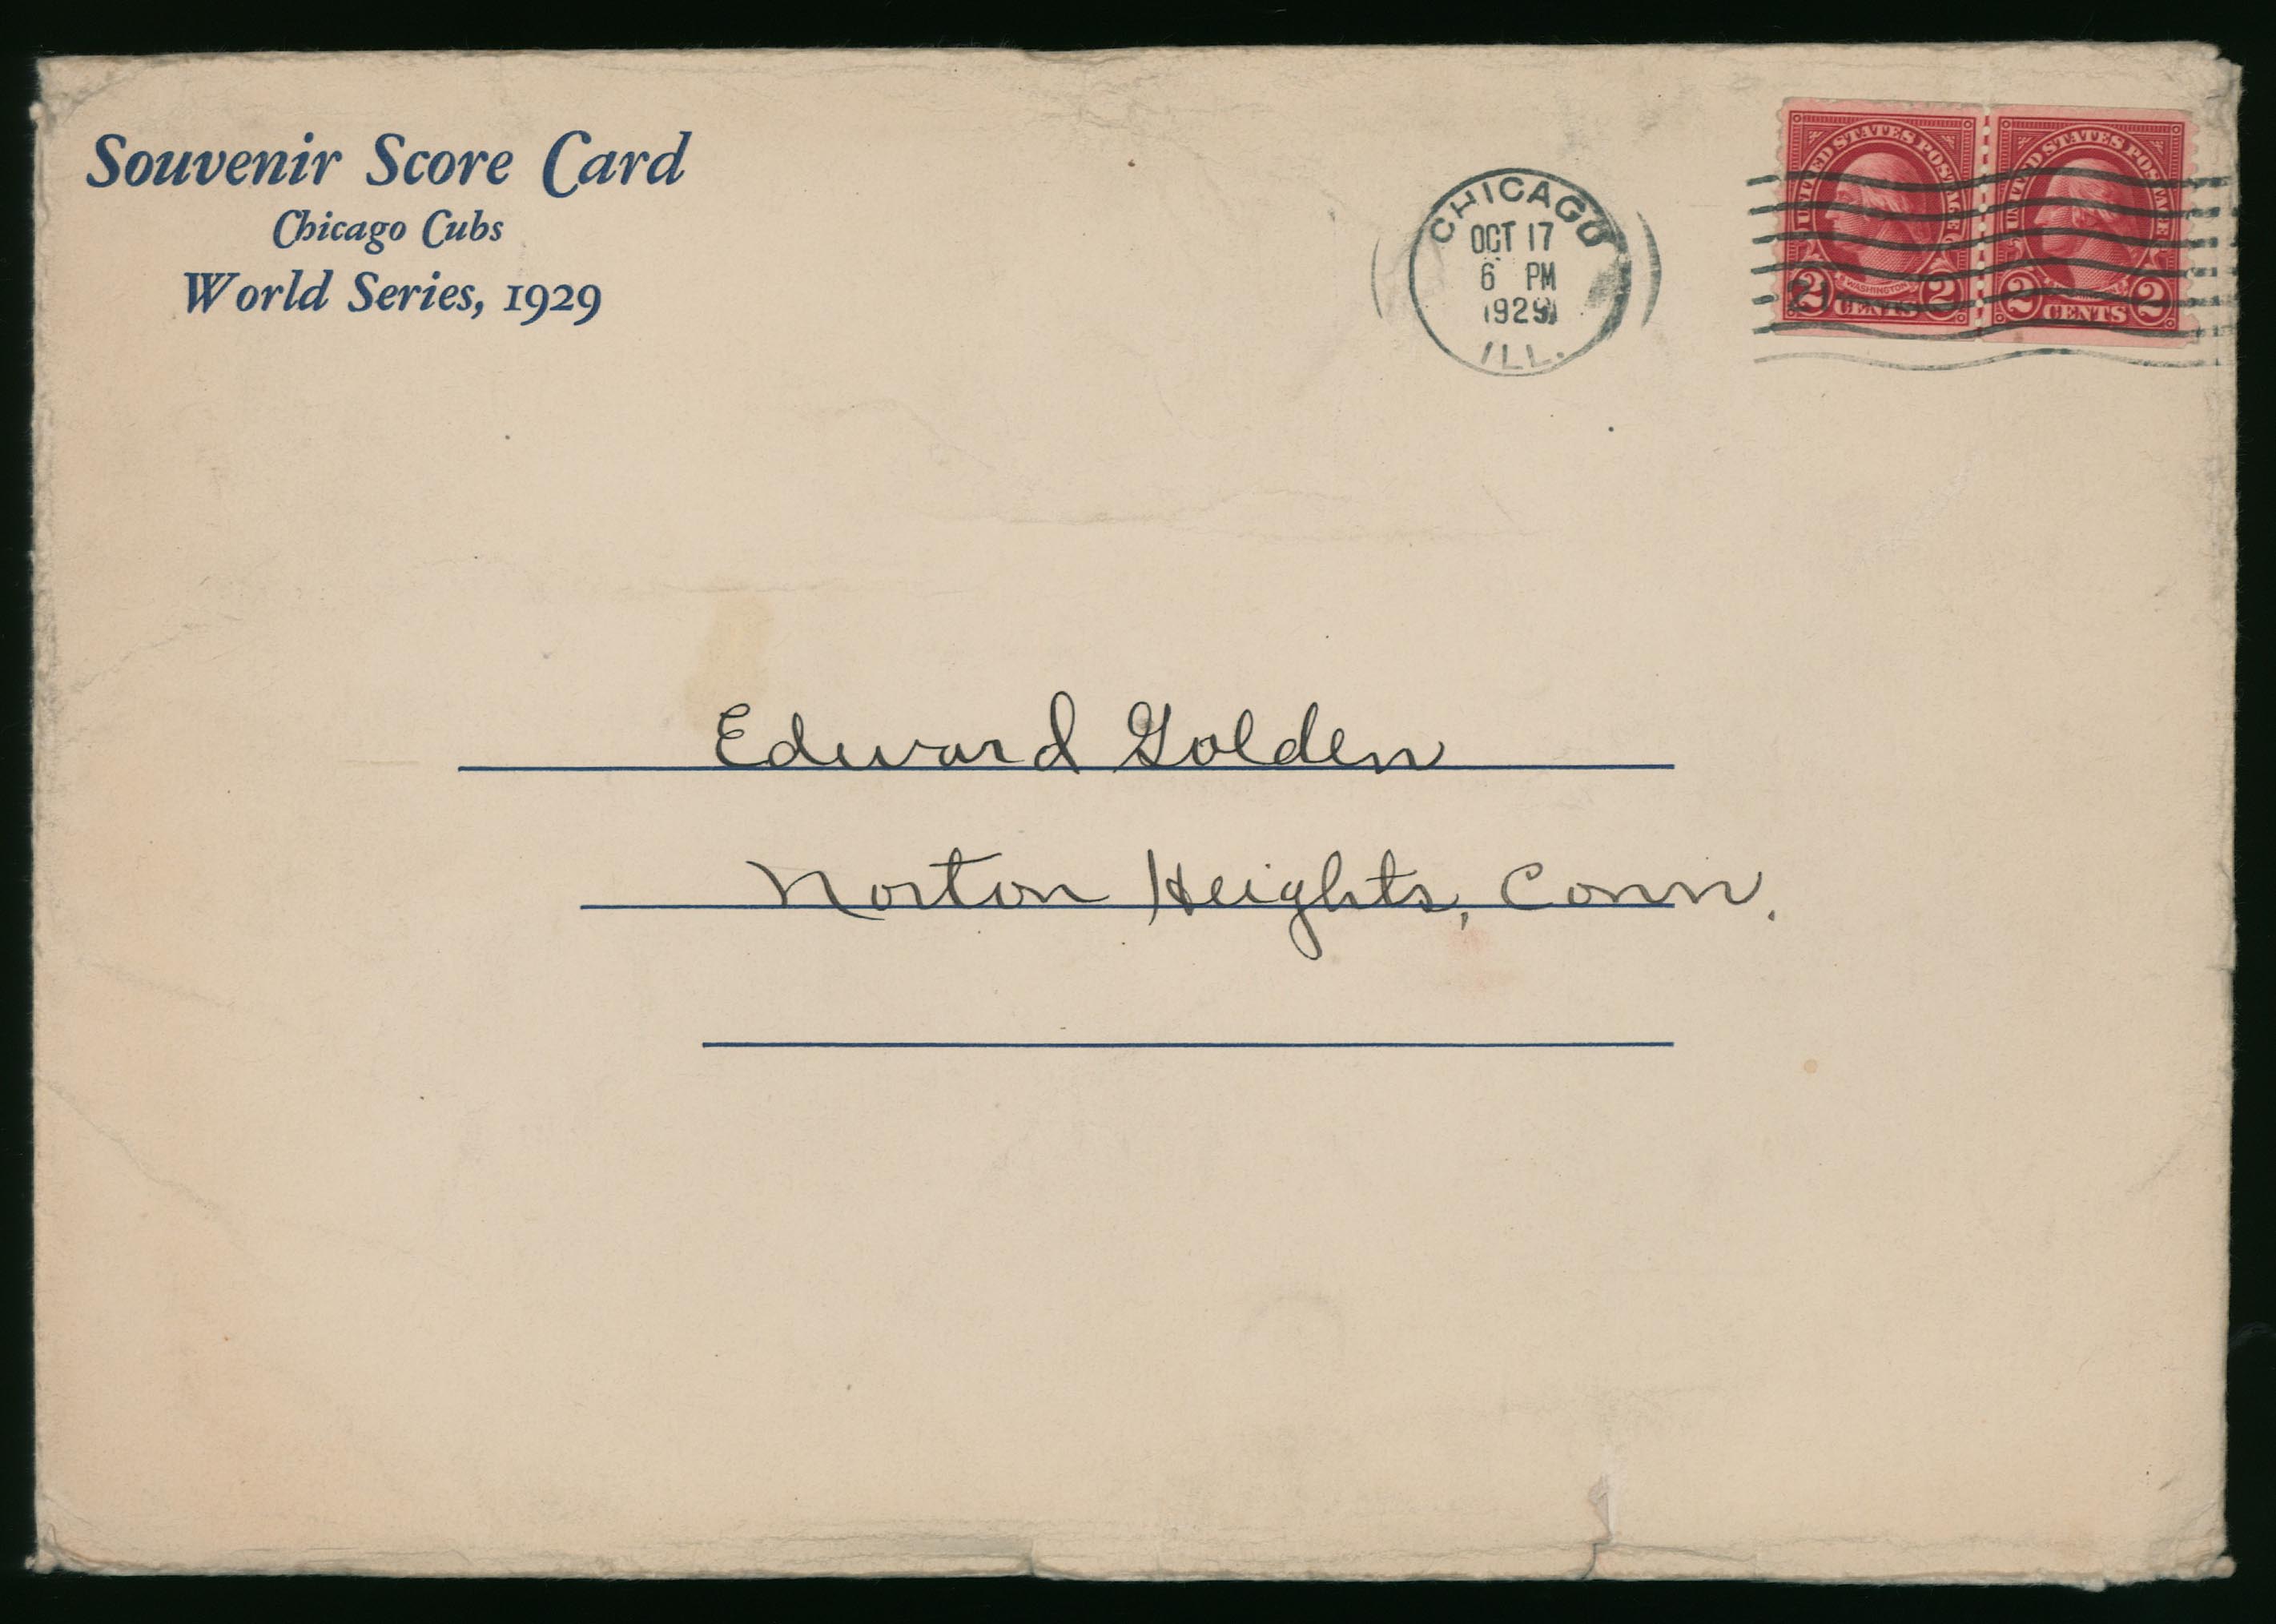 Souvenir Score Card
Chicago Cubs
World Series, 1929
CHICAGO
OCT 17
6 PM
1929
ILL.
UNITED STATES POSTAGE
WASHINGTON
2 CENTS 2
UNITED STATES POSTAGE
2 CENTS 2
Edward Golden
Norton Heights, Conn.